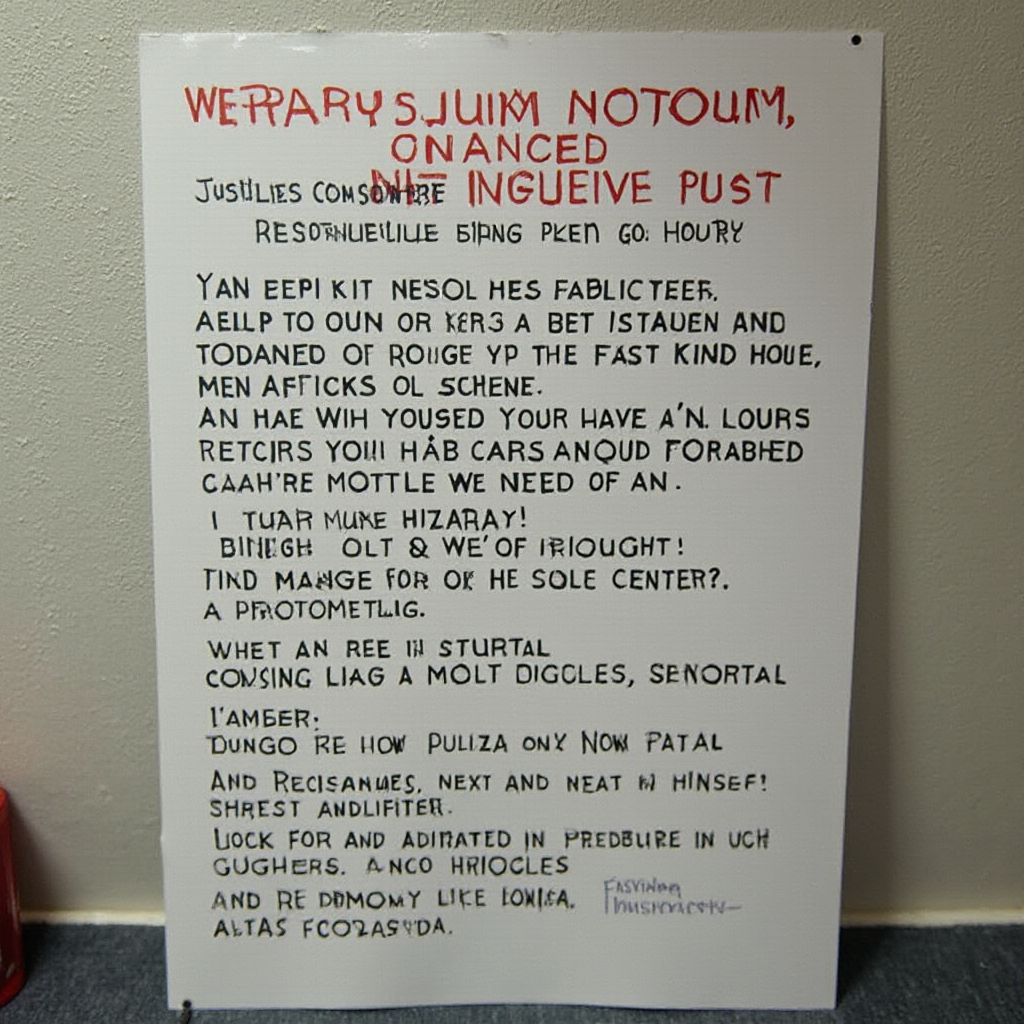 WERPARY SJUIKM NOTOUM,
ONANCED
NIT INGUEIVE PUST
JUSTILIES
BIPNG PKEN GO: HOURY
YAN EEPI KIT NESOL HES FABLICTEER.
AELLP TO OUN OR KER3 A BET ISTAUEN AND
TODANED OF ROUGE YP THE FAST KIND HOUE,
MEN AFFICKS OL SCHENE.
AN HAE WIH YOUSED YOUR HAVE A'N. LOURS
RETCIRS YOUI HÅB CARS ANQUD FORABHED
CAAH'RE MOTTLE WE NEED OF AN.
I TUAR MUKE HIZARAY!
OLT & WE'OF IRIOUGHT!
TIND MANGE FOR OK HE SOLE CENTER?.
A PROTOMETLIG.
WHET AN REE IN STURTAL
CONSING LIAG A MOLT DIGCLES, SENORTAL
I'AMBER:
DUNGO RE HOW PULIZA ONY NOW FATAL
AND RECISANUES, NEXT AND NEAT IN HINSEF!
SHREST ANDLIFITER.
LIOCK FOR AND ADIRATED IN PREDBURE IN UCH
GUGHERS. ANCO HRIOCLES
AND RE DOMOMY LIKE
ALTAS FCOZASYDA.